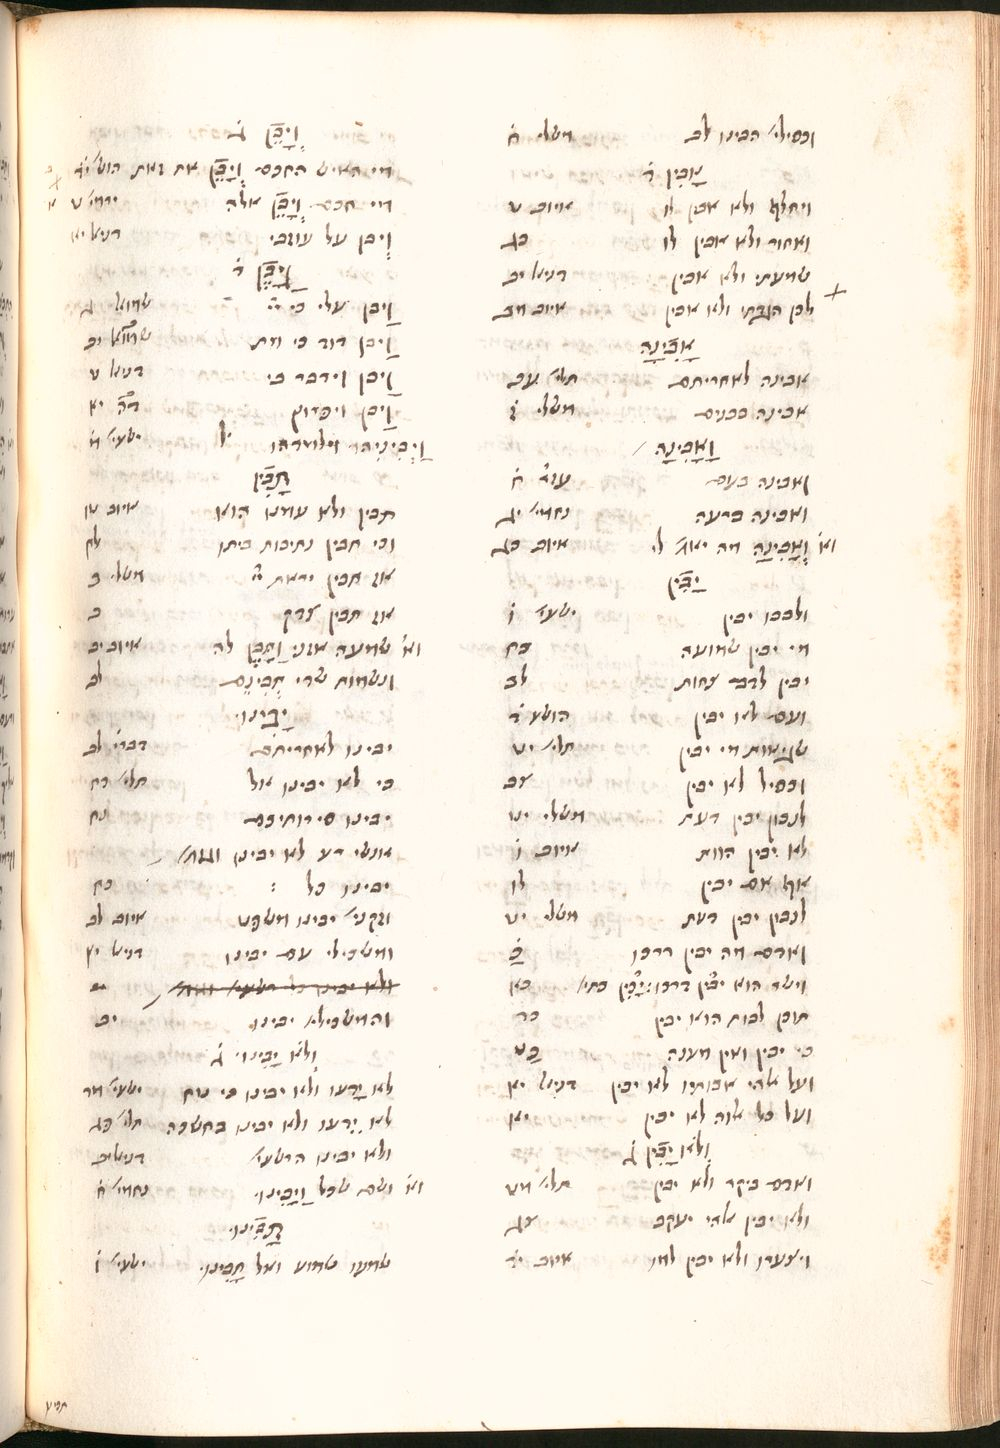 וכסילי׳ הבינו לב משלי ח
אָבִין ד
ויחלף ולא אבין לו איוב ט
ואחור ולא אבין לו כג
שמעתי ולא אבין דניאל יב
לכן הגדתי ולא אבין איוב מב
אָבִינָה
אבינה לאחריתם תלי׳ עג
אבינה בבנים משלי ז
וָאָבִינָה
ואבינה בעם עזר׳ ח
ואבינה ברעה נחמי׳ יג
וא׳ וְאָבִינָה מה יאמ׳ לי איוב כג
יָבִין
ולבבו יבין ישעי׳ ו
מי יבין שמועה כח
יבין לדבר צחות לב
ועם לא יבין הושע ד
שגיאות מי יבין תלי׳ יט
וכסיל לא יבין צב
לנבון יבין דעת משלי יט
לא יבין הוות איוב ו
אף אם יבין לו
לנבון יבין דעת משלי יט
ואדם מה יבין דרכו כ
וישר הוא יבין דרכו יָכִין כתי׳ כא
תוכן לבות הוא יבין כד
כי יבין ואין מענה כט
ועל אלהי אבותיו לא יבין דניאל יא
ועל כל אלוה לא יבין יא
וְלֹא יָבִין ג
ואדם ביקר ולא יבין תלי׳ מט
ולא יבין אלהי יעקב צד
ויצערו ולא יבין למו איוב יד
וְיָבֵן ג
מי האיש החכם וְיָבֵן את זאת הוש׳ יד
מי חכם וְיָבֵן אלה ירמי׳ ט
וְיבן על עוזבי דניאל יא
וַיָבֶן ד
וַיבן עלי כי יי׳ שמואל ג
וַיבן דוד כי מת שמואל יב
וַיבן וידבר כי דניאל ט
וַיבן ויפרוץ דה׳ יא
וַיְבִינֵיהו וילמדהו ישעי׳ ח
תָּבִין
תבין ולא עמנו הוא איוב טו
וכי תבין נתיבות ביתו לח
אז תבין יראת יי׳ משלי ב
אז תבין צדק ב
וא׳ שמעה אזני וַתָבֶן לה איוב יג
ונשמות שדי תְבִינֵם לב
יָבִינוּ
יבינו לאחריתם דברי׳ לב
כי לא יבינו אל תלי׳ כח
יבינו סירותיכם נח
אנשי רע לא יבינו וגומ׳
יבינו כל כח
וזקני׳ יבינו משפט איוב לב
ומשכילי עם יבינו דניאל יא
ולא יבינו כל רשעי׳ וגומ׳
והמשכילי׳ יבינו יב
וְלֹא יָבִינוּ ג
לא ידעו ולא יבינו כי טח ישעי׳ מד
לא ידעו ולא יבינו בחשכה תלי׳ פב
ולא יבינו הרשעי׳ דניאל יב
וא׳ ושם שכל וַיָּבִינוּ נחמי׳ ח
תָּבִינוּ
שמעו שמוע ואל תבינו ישעי׳ ו